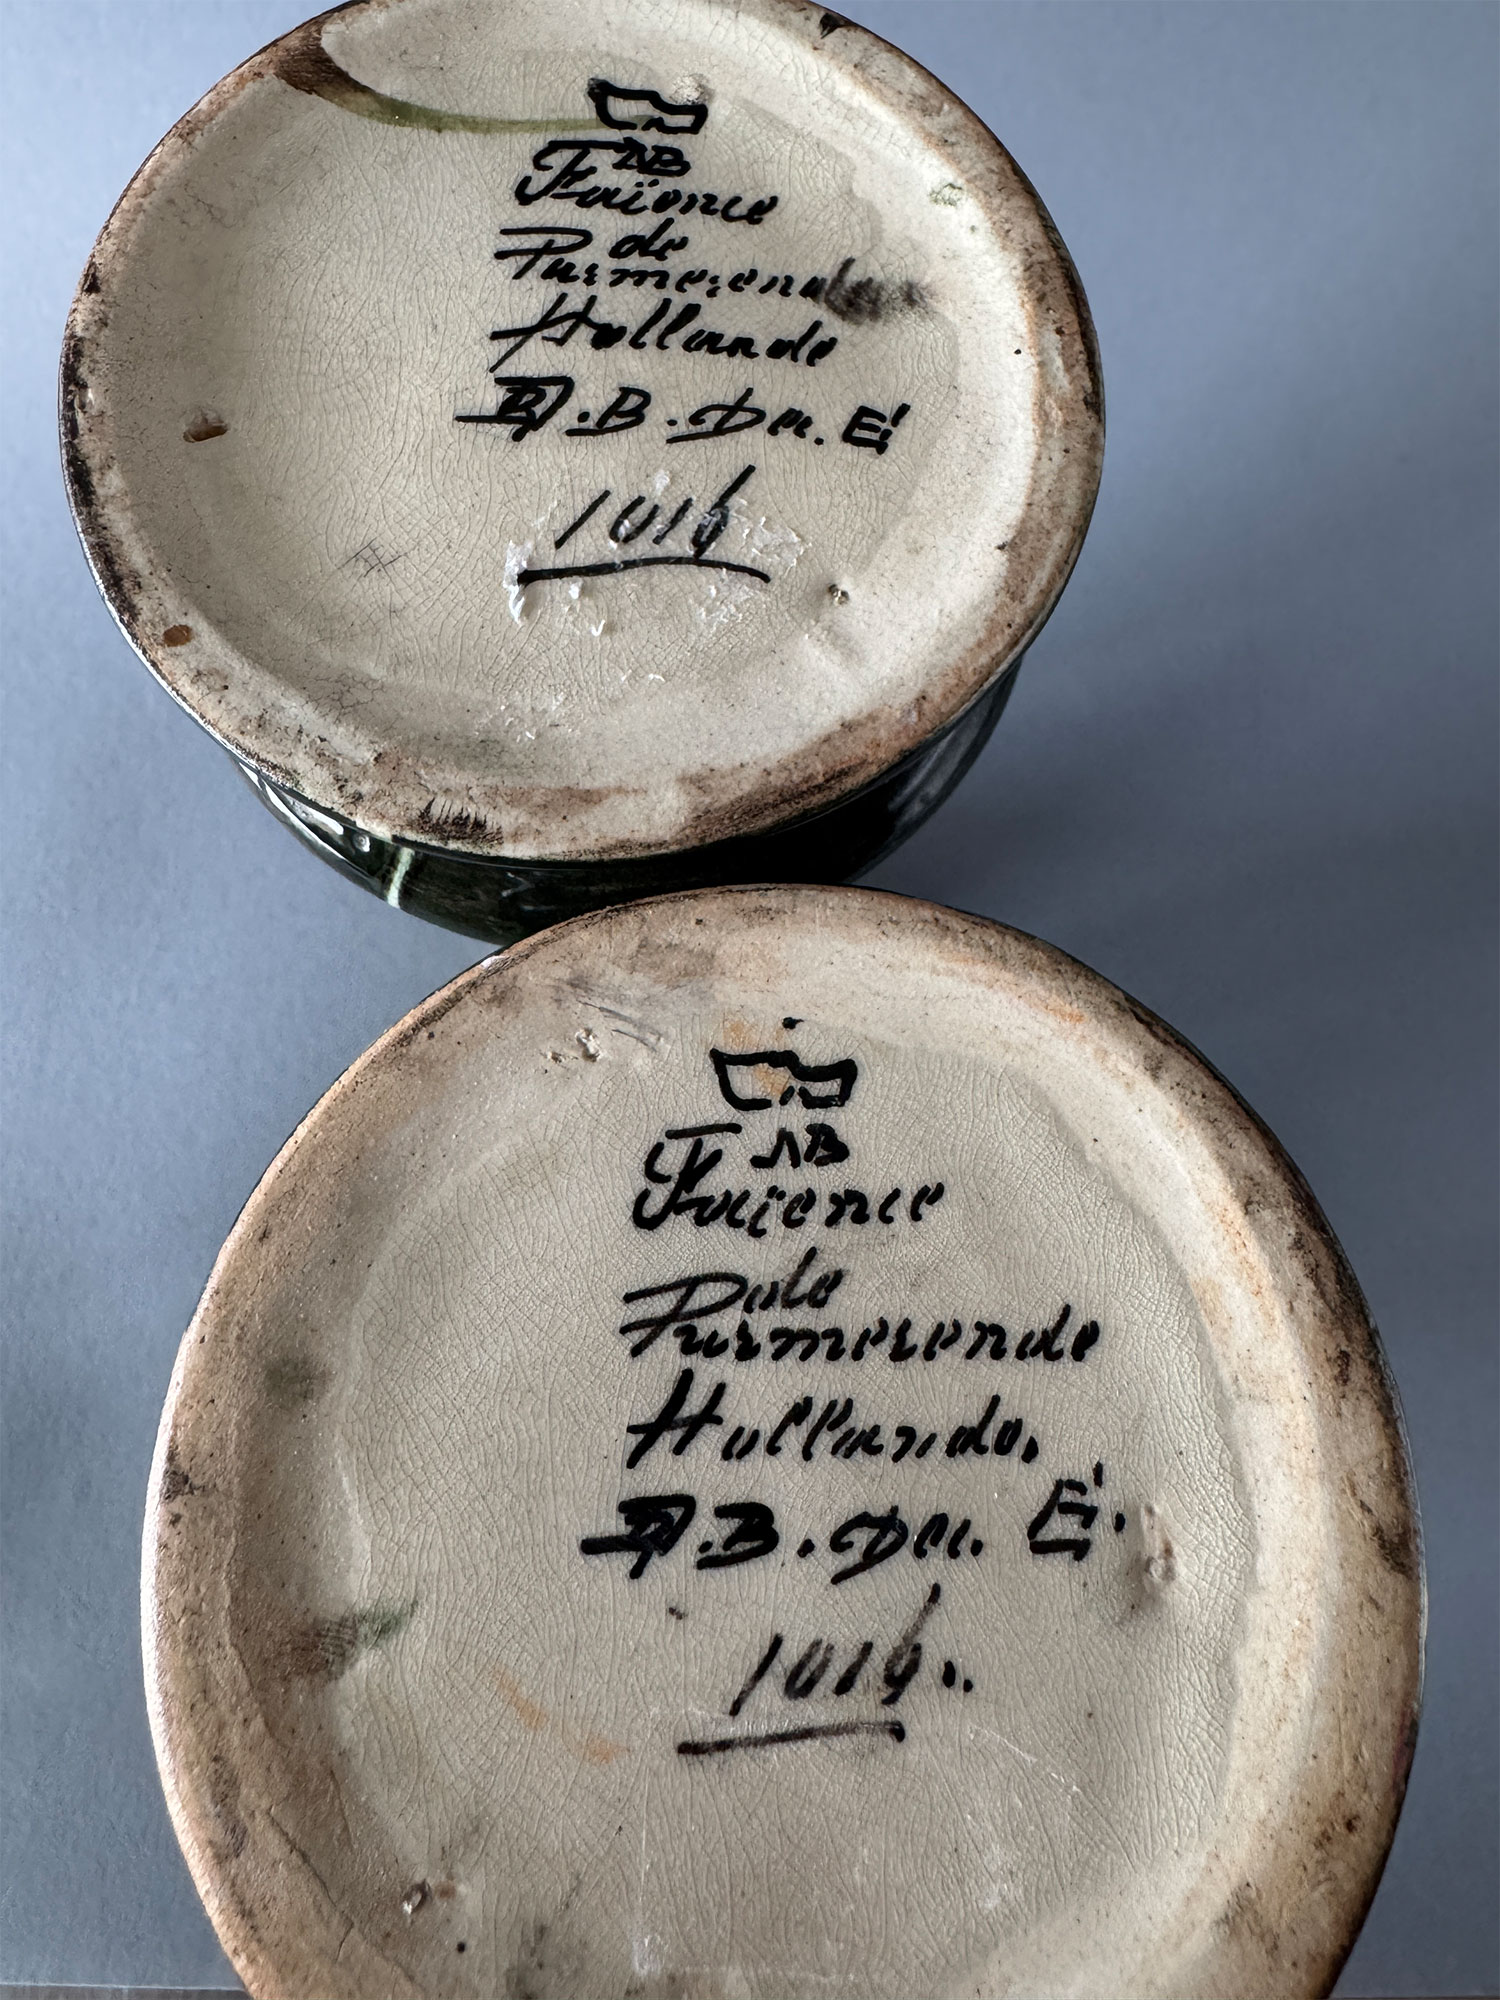 NB
Faïence
de
Purmerende
Hollande
B. Dec. E!
1016
NB
Faïence
de
Purmerende
Hollande.
B. Dec. E!.
1016..